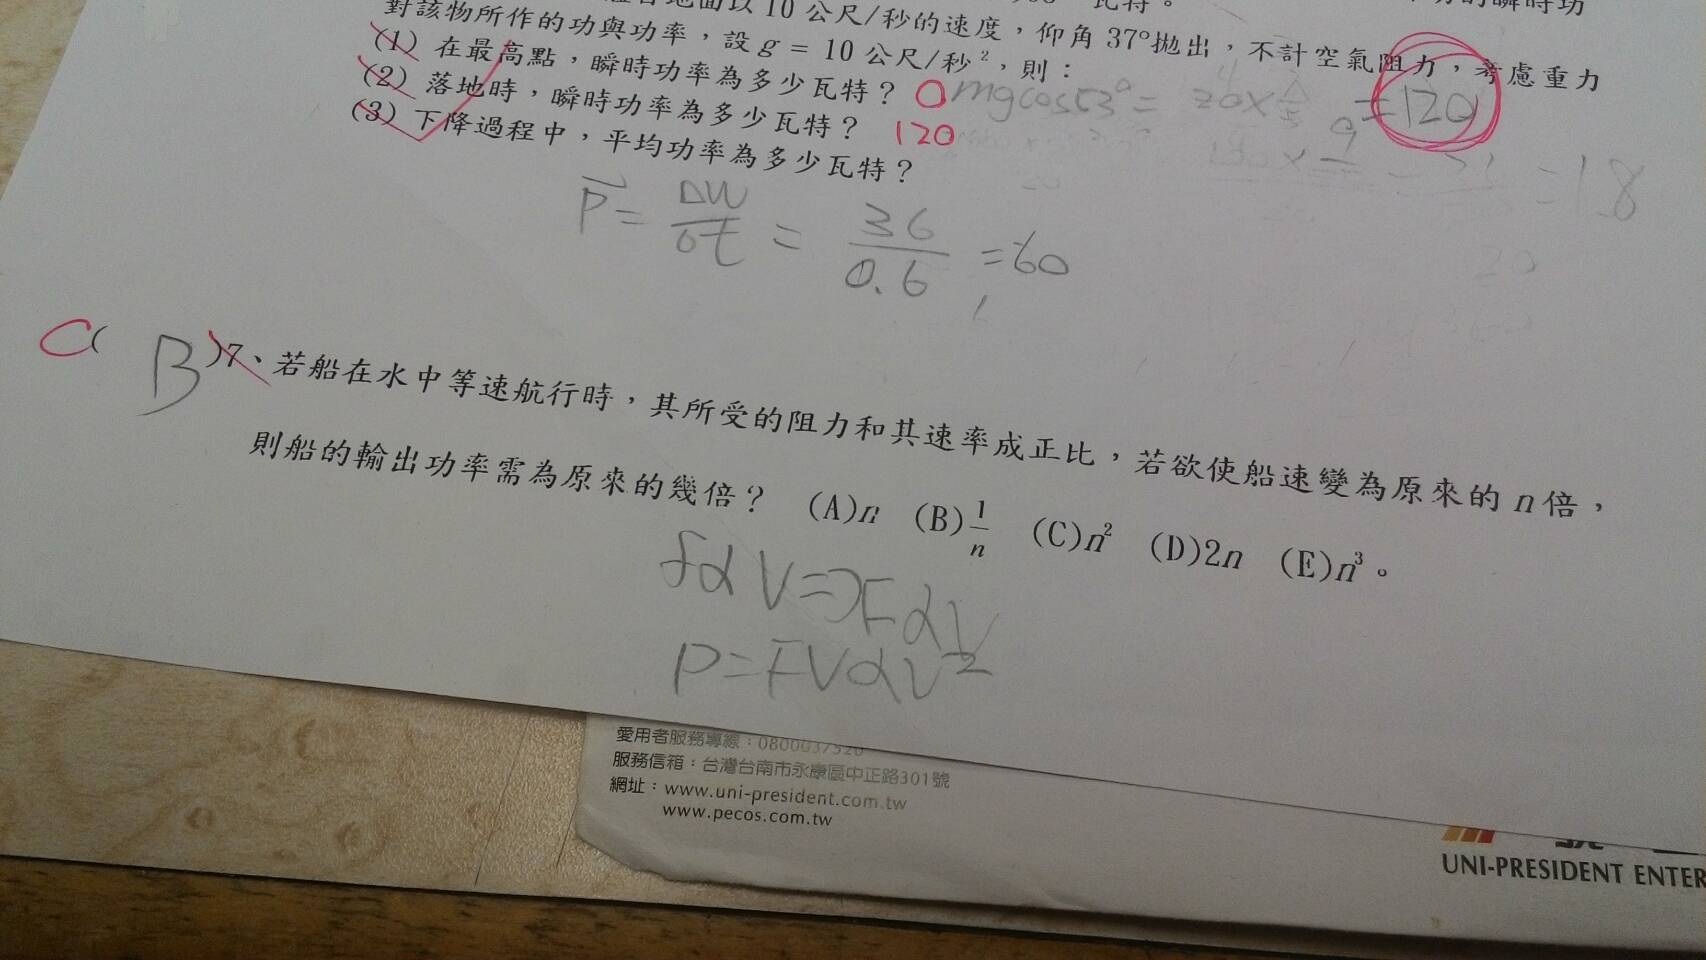 地面以10公尺/秒的速度，仰角37°拋出，不計空氣阻力，考慮重力
對該物所作的功與功率，設g = 10 公尺/秒²，則：
(1) 在最高點，瞬時功率為多少瓦特？ 0 mgcos53° =
= 120
(2) 落地時，瞬時功率為多少瓦特？ 120
(3) 下降過程中，平均功率為多少瓦特？
= 1.8
P = ΔW/Δt = 36/0.6 = 60
C ( B )7、若船在水中等速航行時，其所受的阻力和其速率成正比，若欲使船速變為原來的n倍，
則船的輸出功率需為原來的幾倍？ (A)n (B)1/n (C)n² (D)2n (E)n³。
f α V => F α V
P = FV α V²
愛用者服務專線：0800037520
服務信箱：台灣台南市永康區中正路301號
網址：www.uni-president.com.tw
www.pecos.com.tw
UNI-PRESIDENT ENTER